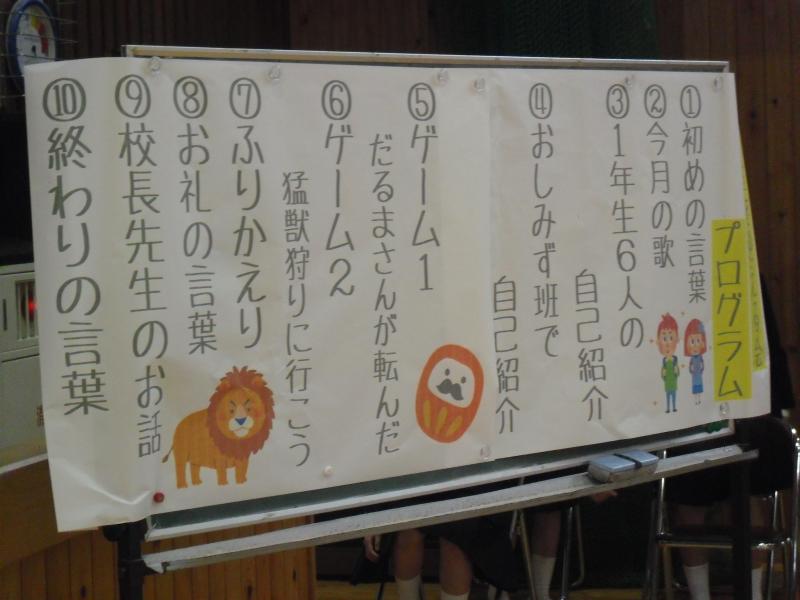 プログラム
①初めの言葉
②今月の歌
③1年生6人の
自己紹介
④おしみず班で
自己紹介
⑤ゲーム1
だるまさんが転んだ
⑥ゲーム2
猛獣狩りに行こう
⑦ふりかえり
⑧お礼の言葉
⑨校長先生のお話
⑩終わりの言葉